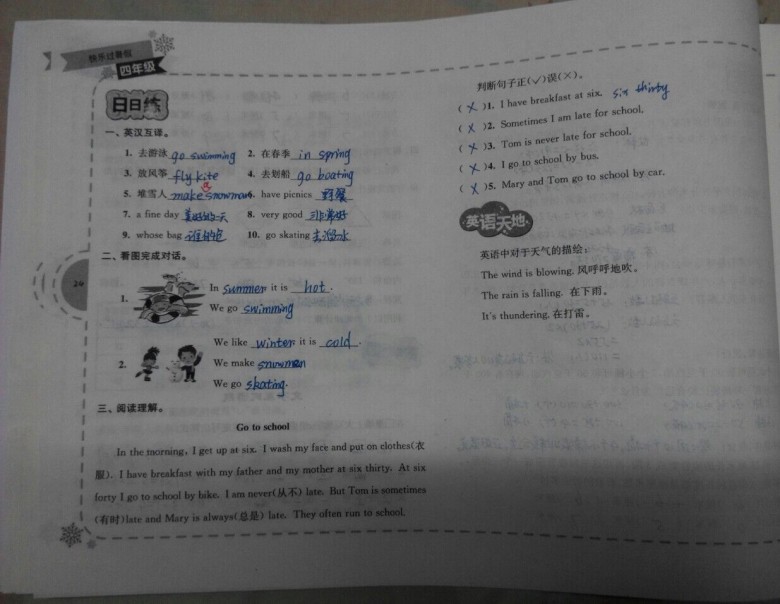 快乐过暑假
四年级
日日练
一、英汉互译。
1. 去游泳 go swimming 2. 在春季 in spring
3. 放风筝 fly kite 4. 去划船 go boating
5. 堆雪人 make snowman 6. have picnics 野餐
7. a fine day 美好的一天 8. very good 非常好
9. whose bag 谁的包 10. go skating 去溜冰
二、看图完成对话。
1. In summer it is hot.
We go swimming
2. We like winter it is cold.
We make snowman
We go skating.
三、阅读理解。
Go to school
In the morning, I get up at six. I wash my face and put on clothes(衣
服). I have breakfast with my father and my mother at six thirty. At six
forty I go to school by bike. I am never(从不) late. But Tom is sometimes
(有时)late and Mary is always(总是) late. They often run to school.
20
判断句子正(✓)误(×)。
(×)1. I have breakfast at six. six thirty
(×)2. Sometimes I am late for school.
(×)3. Tom is never late for school.
(×)4. I go to school by bus.
(×)5. Mary and Tom go to school by car.
英语天地
英语中对于天气的描绘：
The wind is blowing. 风呼呼地吹。
The rain is falling. 在下雨。
It's thundering. 在打雷。